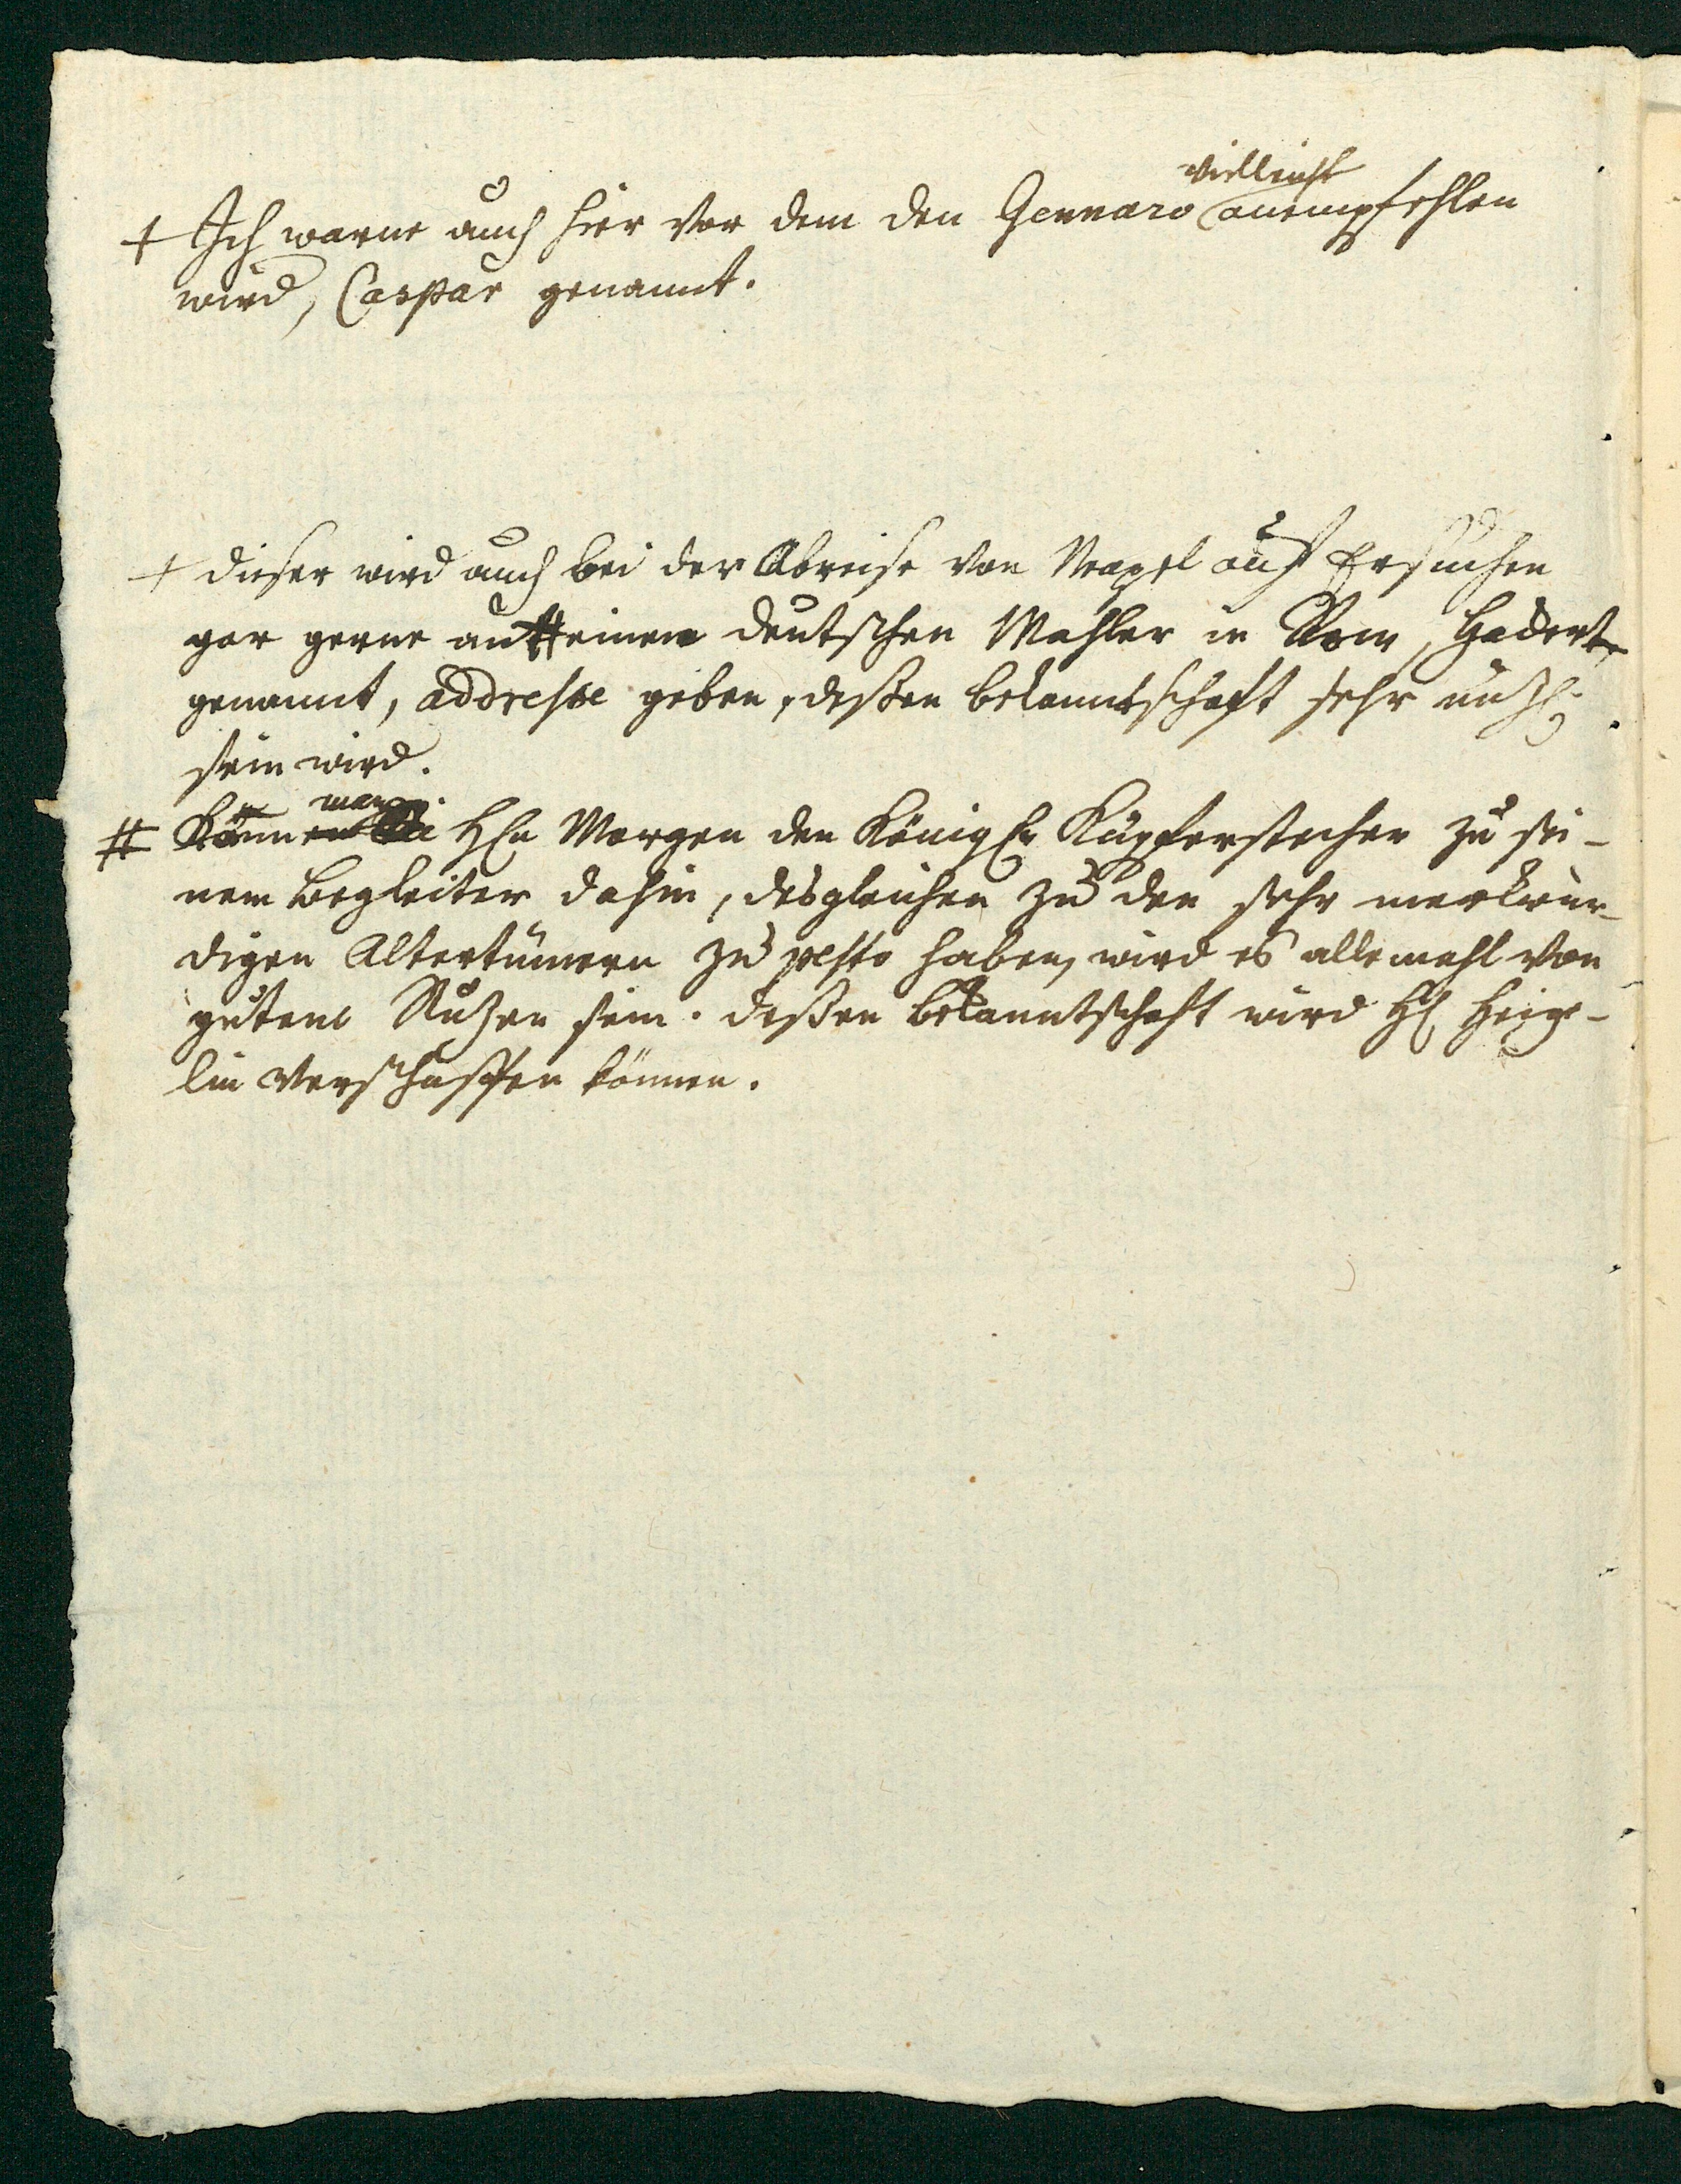 vielleicht
+ Ich warne auch hier vor dem den Gennaro anempfehlen
wird, Caspar genannt.
+ dieser wird auch bei der Abreise von Neapel auf Ersuchen
gar gerne an einen deutschen Mahler in Rom, Hackert
genannt, addresse geben, deßen bekanntschaft sehr nüzl.
sein wird.
man
# Kann HEn Morgen den Königlen Kupferstecher zu sei-
nem Begleiter dahin, desgleichen zu den sehr merkwür-
digen Altertümern zu pesto haben, wird es allemahl von
gutem Nuzen sein. deßen bekanntschaft wird HE Heige-
lin verschaffen können.